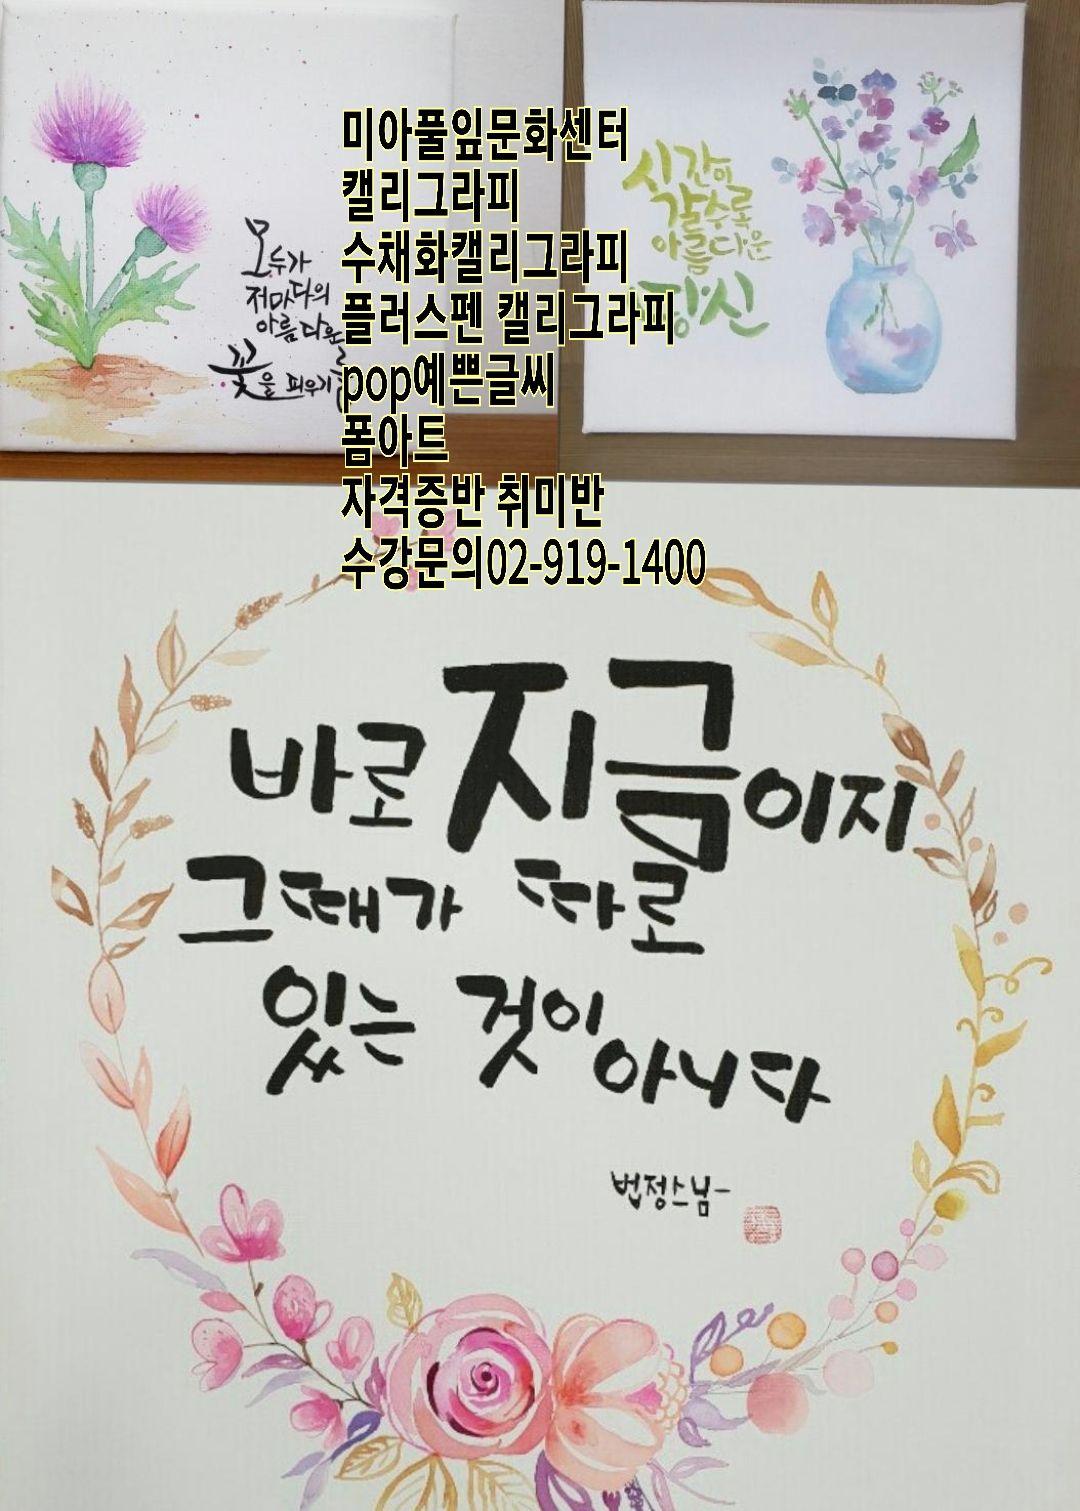 미아풀잎문화센터
캘리그라피
수채화캘리그라피
플러스펜 캘리그라피
pop예쁜글씨
폼아트
자격증반 취미반
수강문의02-919-1400
모두가
저마다의
아름다운
꽃을 피우기를
시간이
갈수록
아름다운
당신
바로 지금이지
그때가 따로
있는 것이
아니다
법정스님-